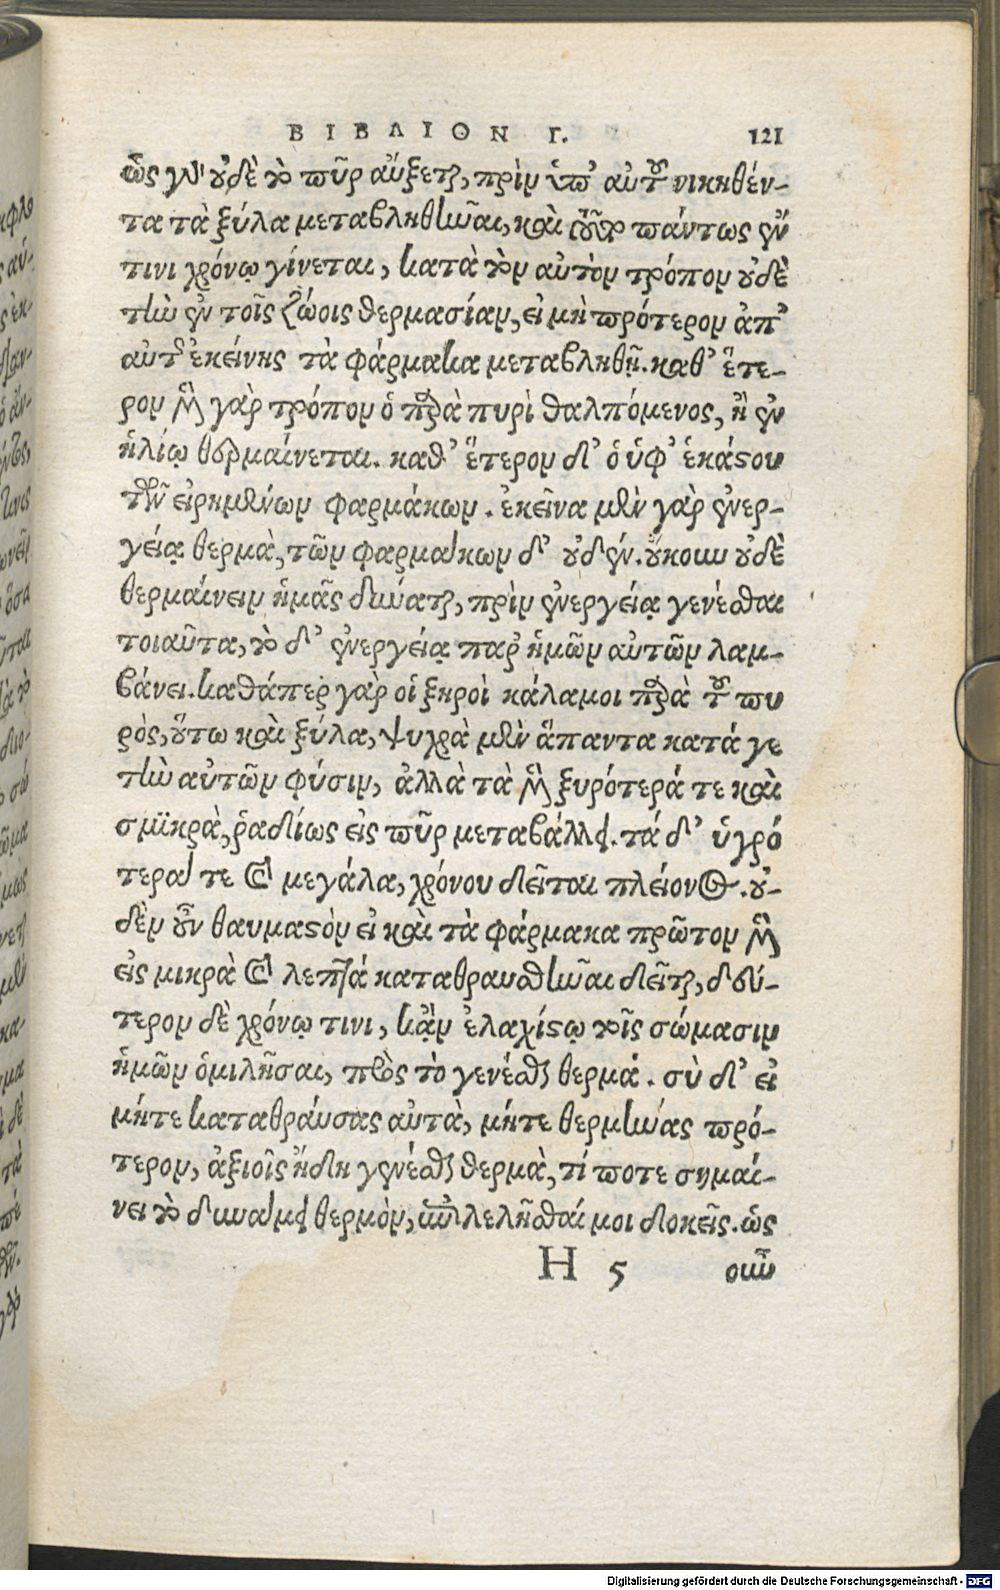 ΒΙΒΛΙΟΝ Γ. 121
ὡς γὰρ οὐδὲ τὸ πῦρ αὔξεται, πρὶν ὑπ' αὐτοῦ νικηθέν-
τα τὰ ξύλα μεταβληθῆναι, καὶ τοῦτο πάντως ἐν
τινι χρόνῳ γίνεται, κατὰ τὸν αὐτὸν τρόπον οὐδὲ
τὴν ἐν τοῖς ζώοις θερμασίαν, εἰ μὴ πρότερον ἀπ'
αὐτῆς ἐκείνης τὰ φάρμακα μεταβληθῇ. καθ' ἕτε-
ρον μὲν γὰρ τρόπον ὁ παρὰ πυρὶ θαλπόμενος, ἢ ἐν
ἡλίῳ θερμαίνεται. καθ' ἕτερον δ' ὁ ὑφ' ἑκάστου
τῶν εἰρημένων φαρμάκων. ἐκεῖνα μὲν γὰρ ἐνερ-
γείᾳ θερμὰ, τῶν φαρμάκων δ' οὐδέν. οὔκουν οὐδὲ
θερμαίνειν ἡμᾶς δύναται, πρὶν ἐνεργείᾳ γενέσθαι
τοιαῦτα, τὸ δ' ἐνεργείᾳ παρ' ἡμῶν αὐτῶν λαμ-
βάνει. καθάπερ γὰρ οἱ ξηροὶ κάλαμοι παρὰ τοῦ πυ
ρὸς, οὕτω καὶ ξύλα, ψυχρὰ μὲν ἅπαντα κατά γε
τὴν αὐτῶν φύσιν, ἀλλὰ τὰ μὲν ξυρότερά τε καὶ
σμϊκρὰ, ῥαδίως εἰς πῦρ μεταβάλλει. τά δ' ὑγρό
τερά τε καὶ μεγάλα, χρόνου δεῖται πλείονος. οὐ-
δὲν οὖν θαυμαστὸν εἰ καὶ τὰ φάρμακα πρῶτον μὲν
εἰς μικρὰ καὶ λεπτά καταθραυσθῆναι δεῖται, δεύ-
τερον δὲ χρόνῳ τινι, κᾂν ἐλαχίστῳ τοῖς σώμασιν
ἡμῶν ὁμιλῆσαι, πρὸς τὸ γενέσθαι θερμά. σὺ δ' εἰ
μήτε καταθραύσας αὐτὰ, μήτε θερμήνας πρό-
τερον, ἀξιοῖς ἤδη γενέσθαι θερμὰ, τί ποτε σημαί-
νει τὸ δυνάμει θερμὸν, ἐπιλελῆσθαί μοι δοκεῖς. ὡς
H 5 οὖν
Digitalisierung gefördert durch die Deutsche Forschungsgemeinschaft - DFG